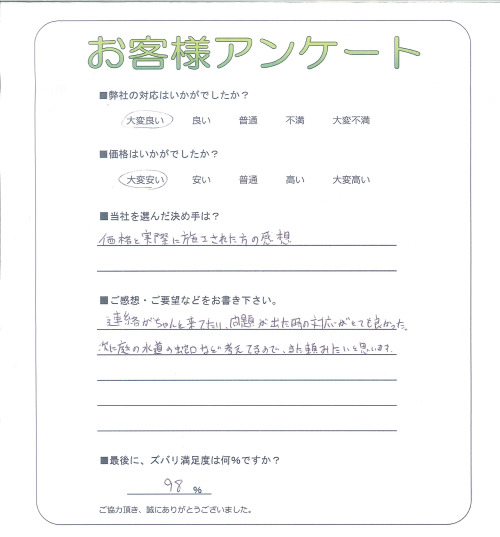 お客様アンケート
■弊社の対応はいかがでしたか？
大変良い 良い 普通 不満 大変不満
■価格はいかがでしたか？
大変安い 安い 普通 高い 大変高い
■当社を選んだ決め手は？
価格と実際に施工された方の感想
■ご感想・ご要望などをお書き下さい。
連絡がちゃんと来てたい、問題が出た時の対応がとても良かった。
次に庭の水道の蛇口など考えてるので、また頼みたいと思います。
■最後に、ズバリ満足度は何%ですか？
98 %
ご協力頂き、誠にありがとうございました。